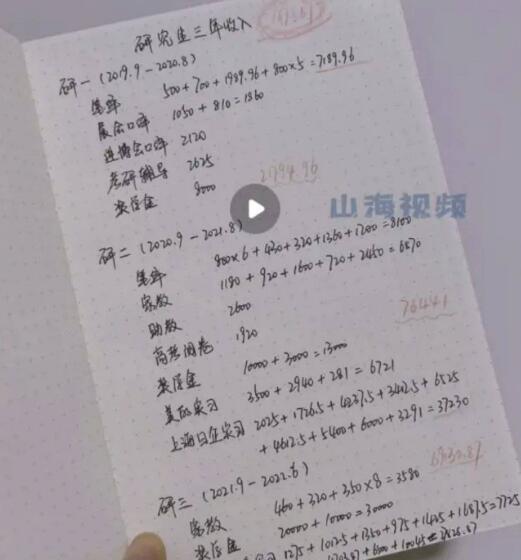 研究生三年收入
研一 (2019.9 - 2020.8)
笔译 500 + 700 + 1989.96 + 800×5 = 7189.96
展会口译 1050 + 810 = 1860
进博会口译 2120
考研辅导 2625
奖学金 8000
21794.96
山海视频
研二 (2020.9 - 2021.8)
笔译 800×6 + 420 + 320 + 1360 + 1200 = 8100
家教 1180 + 920 + 1600 + 720 + 2450 = 6870
助教 2600
高考阅卷 1920
76441
奖学金 10000 + 3000 = 13000
美的实习 3500 + 2940 + 281 = 6721
上海日企实习 2025 + 1726.5 + 4237.5 + 3412.5 + 6525
+ 4612.5 + 5400 + 6000 + 3291 = 37230
研三 (2021.9 - 2022.6)
家教 460 + 320 + 350×8 = 3580
奖学金 20000 + 10000 = 30000
实习 1275 + 1012.5 + 1350 + 975 + 1425 + 1687.5 = 7725